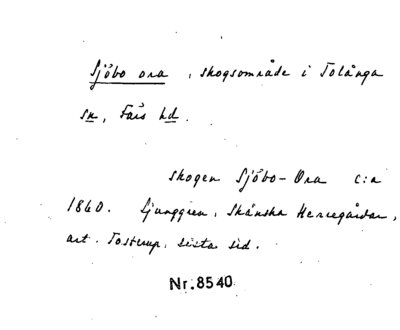 Sjöbo ora, skogsområde i Tolånga
sn, Färs hd.
skogen Sjöbo-Ora c:a
1860. Ljunggren, Skånska Herregårdar,
art. Tosterup, sista sid.
Nr. 8540